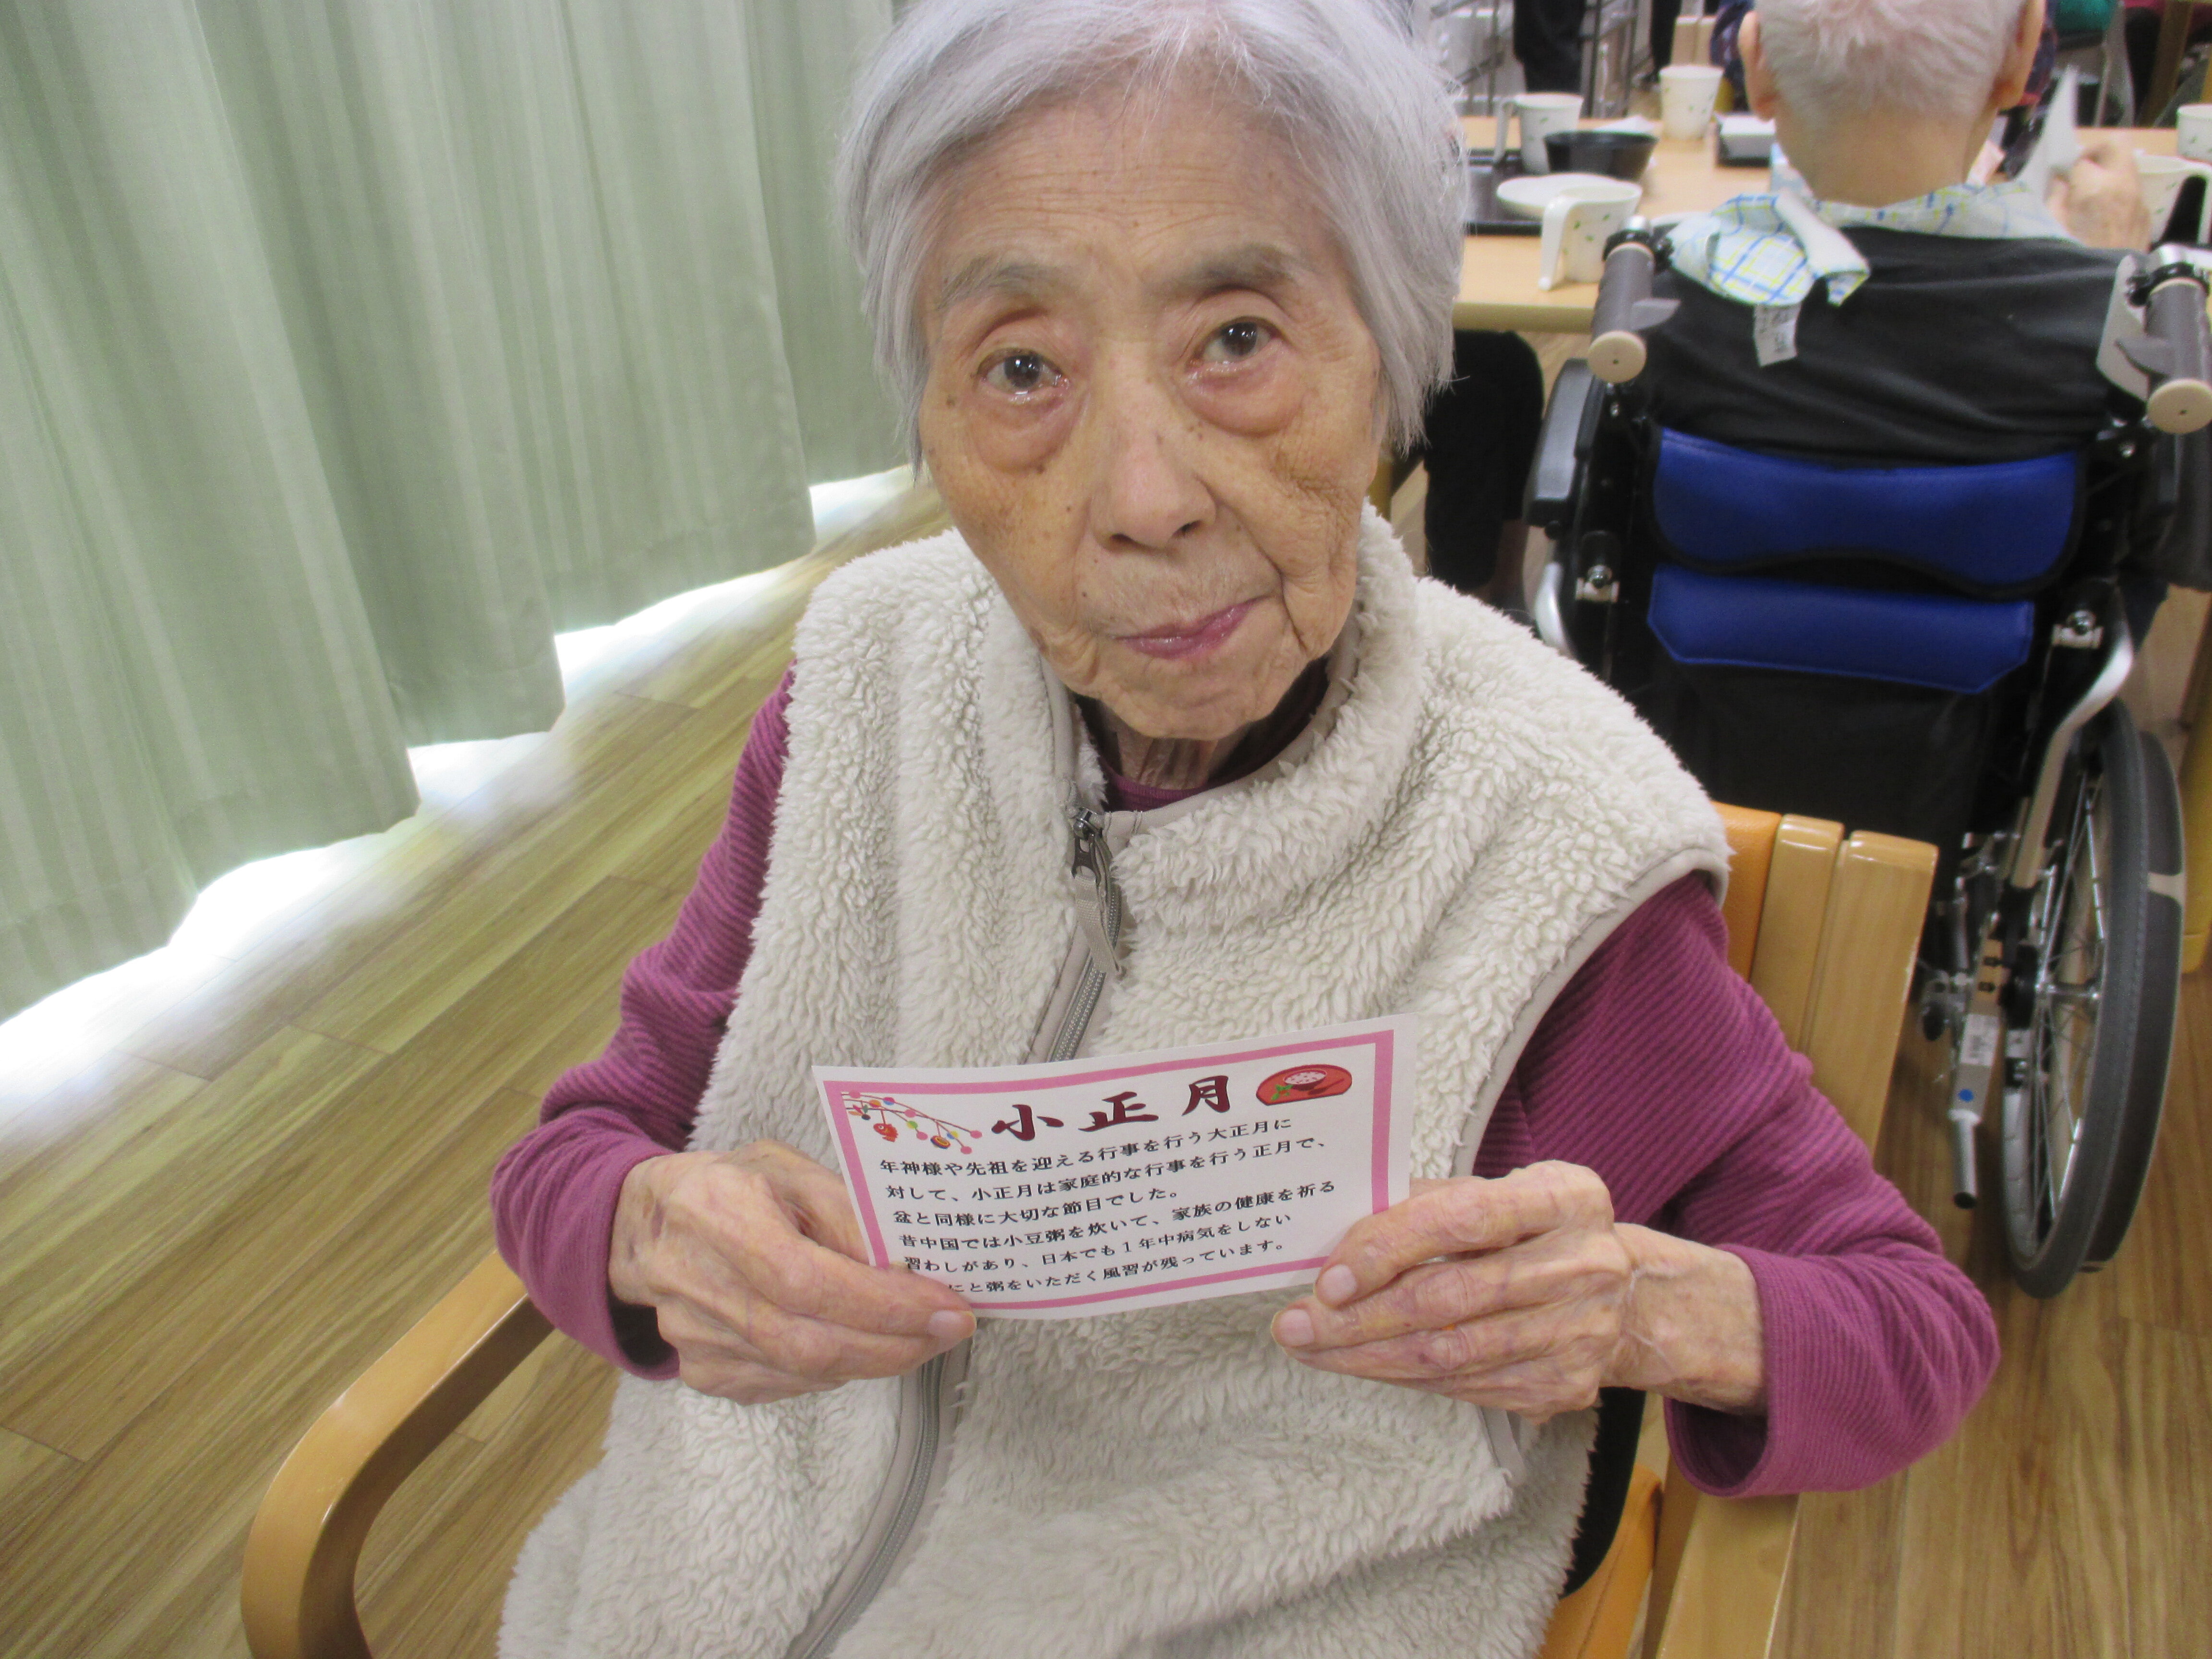 小正月
年神様や先祖を迎える行事を行う大正月に
対して、小正月は家庭的な行事を行う正月で、
盆と同様に大切な節目でした。
昔中国では小豆粥を炊いて、家族の健康を祈る
習わしがあり、日本でも1年中病気をしない
にと粥をいただく風習が残っています。